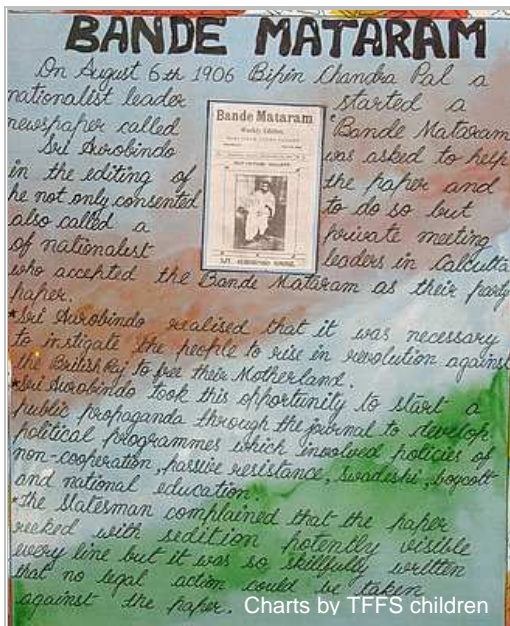 BANDE MATARAM
On August 6th 1906 Bipin Chandra Pal a
nationalist leader started a
newspaper called 'Bande Mataram
Sri Aurobindo was asked to help
in the editing of the paper and
he not only consented to do so but
also called a private meeting
of nationalist leaders in Calcutta
who accepted the Bande Mataram as their party
paper.
*Sri Aurobindo realised that it was necessary
to instigate the people to rise in revolution against
the British Raj to free their Motherland.
*Sri Aurobindo took this opportunity to start a
public propaganda through the journal to develop
political programmes which involved policies of
non-cooperation, passive resistance, swadeshi, boycott
and national education.
*The Statesman complained that the paper
reeked with sedition potently visible
every line but it was so skillfully written
that no legal action could be taken
against the paper.
Bande Mataram
Weekly Edition.
Charts by TFFS children